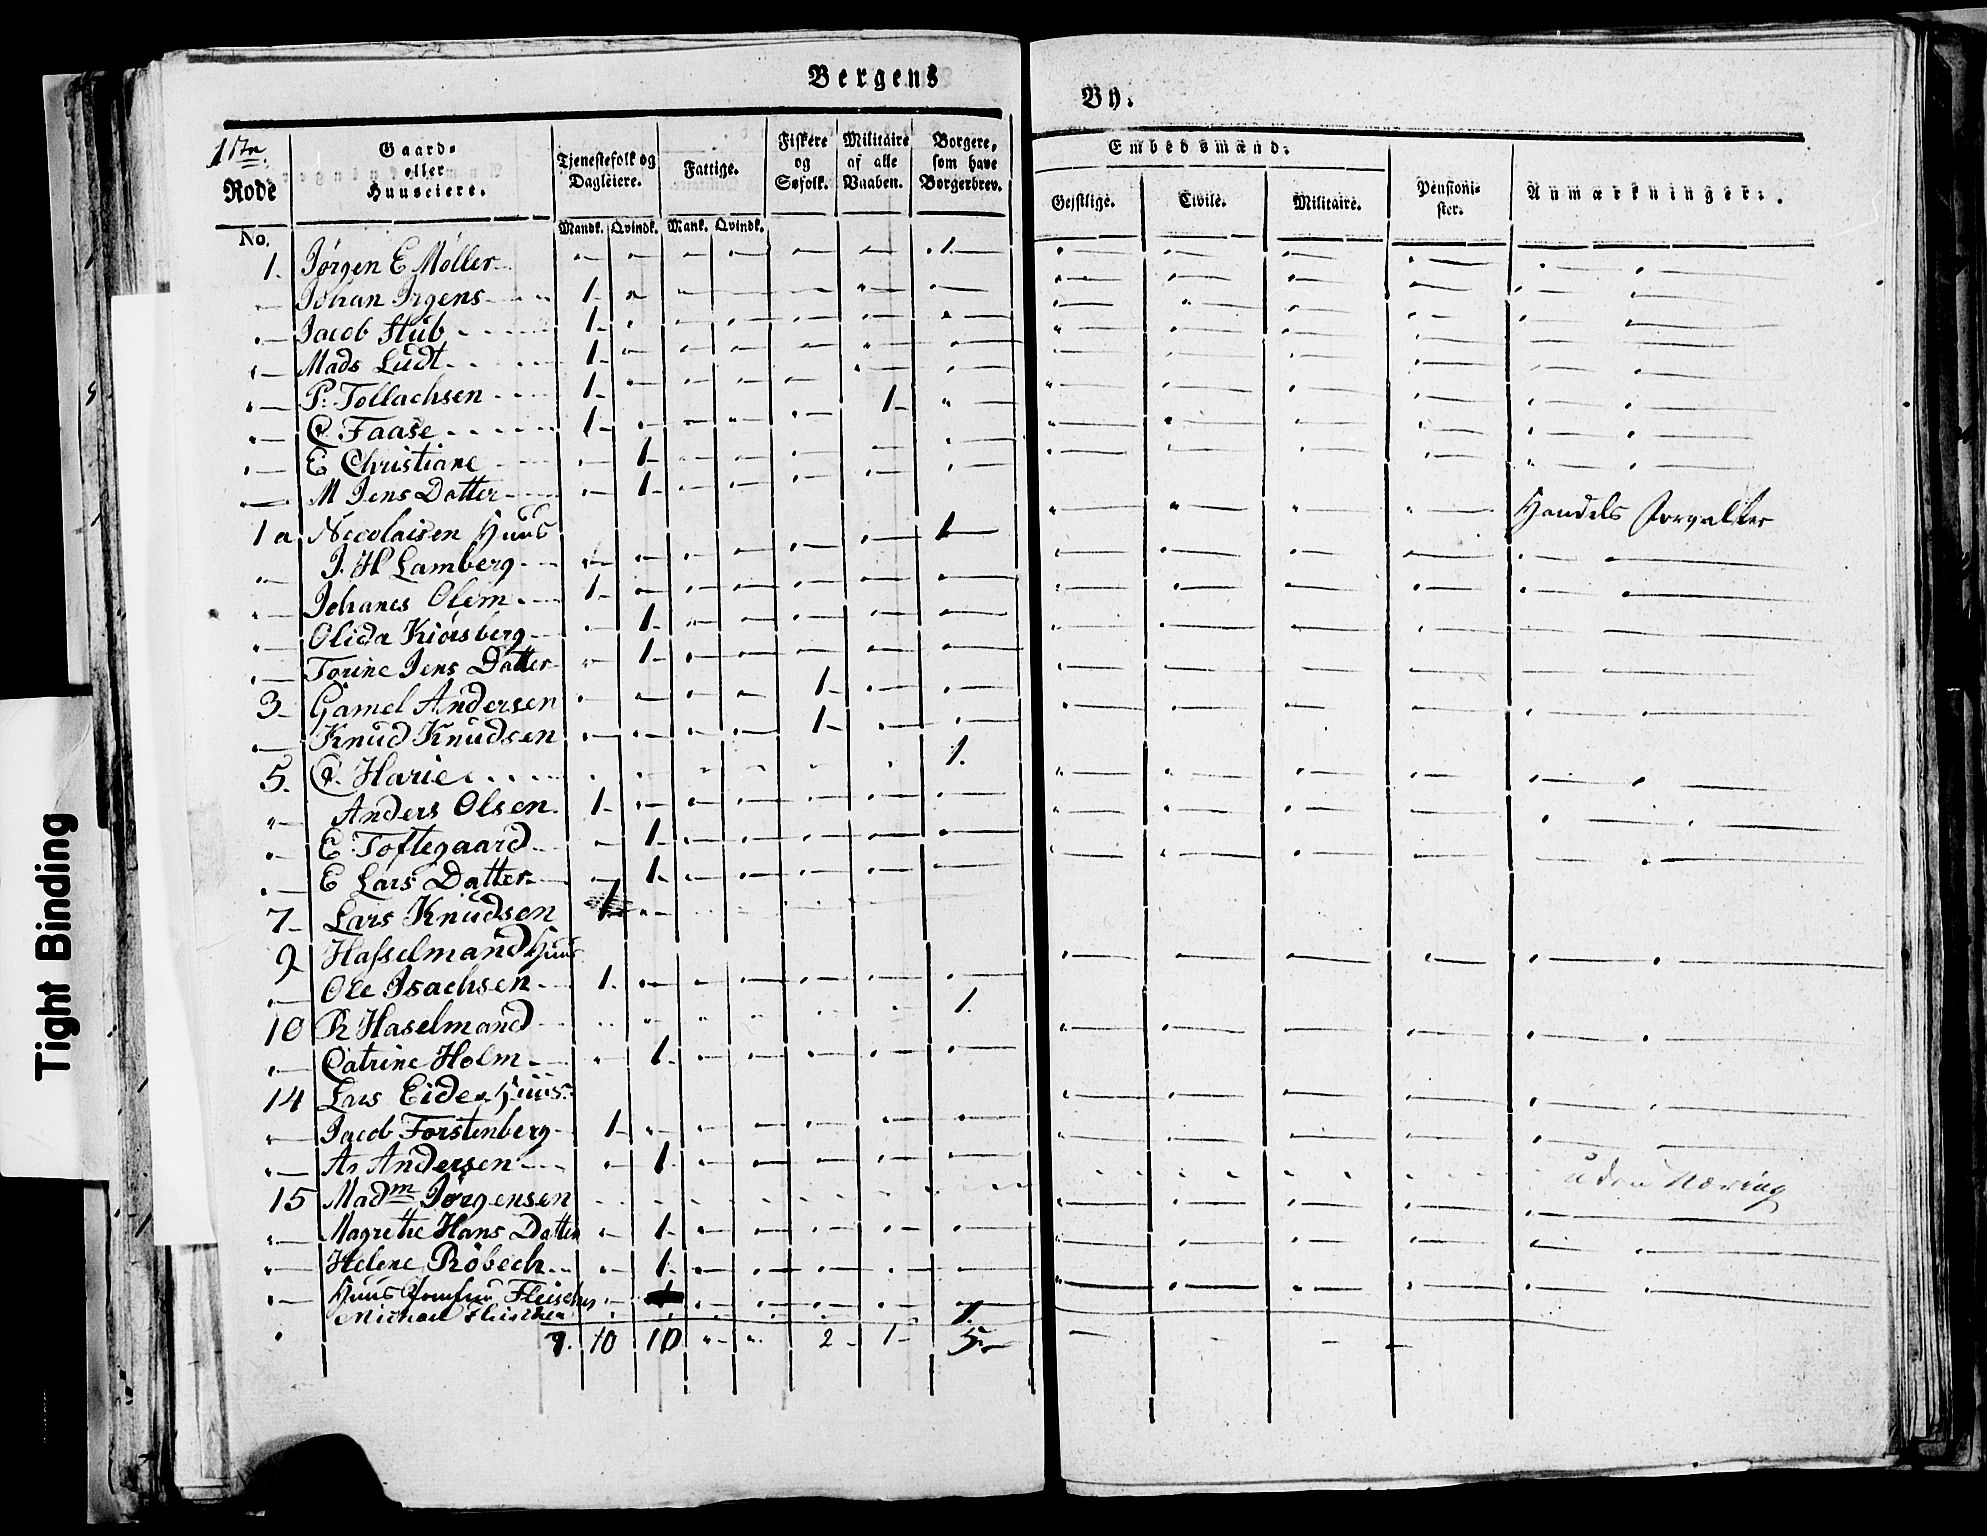 Tight Binding
Bergens By.
1ste Rode No.
Gaard- eller Huuseiere.
Tjenestefolk og Dagleiere.
Mandk. Qvindk.
Fattige.
Mank. Qvindk.
Fiskere og Søfolk.
Militaire af alle Vaaben.
Borgere, som have Borgerbrev.
Embedsmænd:
Gejstlige. Civile. Militaire.
Pensionister.
Anmærkninger.
1. Jørgen E Møller 1
Johan Irgens 1
Jacob Stub 1
Mads Ludt 1
P: Tollachsen 1 1
C. Faase 1
E Christiane 1
M Jens Datter 1
1 a Nicolaisen Huus 1 Handels Forvalter
J. H Lamberg
Johanes Olem 1
Olida Kiørsberg 1
Torine Jens Datter 1
3 Gamel Andersen 1
Knud Knudsen 1
5. C. Harie 1.
Anders Olsen 1
E. Toftegaard 1
E Lars Datter 1
7 Lars Knudsen 1
9 Hasselmands Huus
Ole Isachsen 1
10 R Haselmand 1.
Catrine Holm 1
14 Lars Eides Huus
Jacob Forstenberg 1
An Andersen 1
15 Madm Jørgensen uden Næring
Magrethe Hans Datter 1
Helene Røbech 1
Huus Jomfru Fleischer 1
Michael Fleischer 1.
9. 10 10 2 1 5